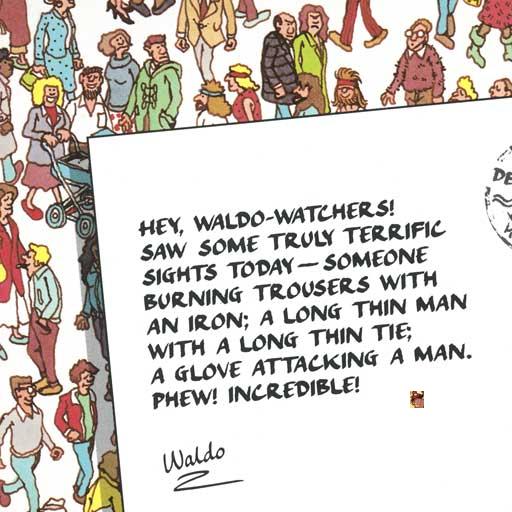 HEY, WALDO-WATCHERS!
SAW SOME TRULY TERRIFIC
SIGHTS TODAY — SOMEONE
BURNING TROUSERS WITH
AN IRON; A LONG THIN MAN
WITH A LONG THIN TIE;
A GLOVE ATTACKING A MAN.
PHEW! INCREDIBLE!
Waldo